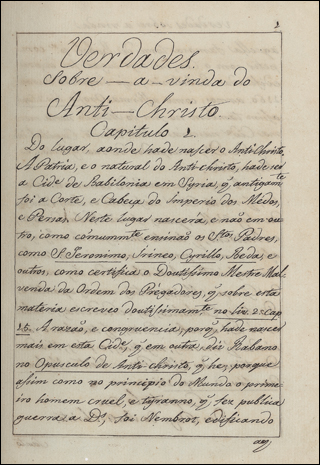 1
Verdades.
Sobre — a — vinda do
Anti — Christo.
Capitulo 1.
Do lugar, aonde hade nascer o Anti Christo,
A Patria, e o natural do Anti-christo, hade ser
a Cid.e de Babilonia em Syria, q̃ antigam.te
foi a Corte, e Cabeça do Imperio dos Mêdos,
e Persas, Neste lugar nascerá, e naõ em ou-
tro, como cómummte ensinaõ os S.tos Padres,
como S. Jeronimo, Irineo, Cyrillo, Beda, e
outros, como certifica o Doutissimo Mestre Mal-
venda da Ordem dos Prégadores, q̃ sobre esta
materia escreveo doutisimam.te no Liv. 2.º Cap
15. A razaõ, e congruencia, porq̃ hade nascer
mais em esta Cid.e q̃ em outra, déi Rabano
no Opusculo de Anti-christo, q̃ fez, porque
assim como no principio do Mundo o primei-
ro homem cruel, e tyranno, q̃ fez publica
guerra a D.s foi Nembrot, edificando